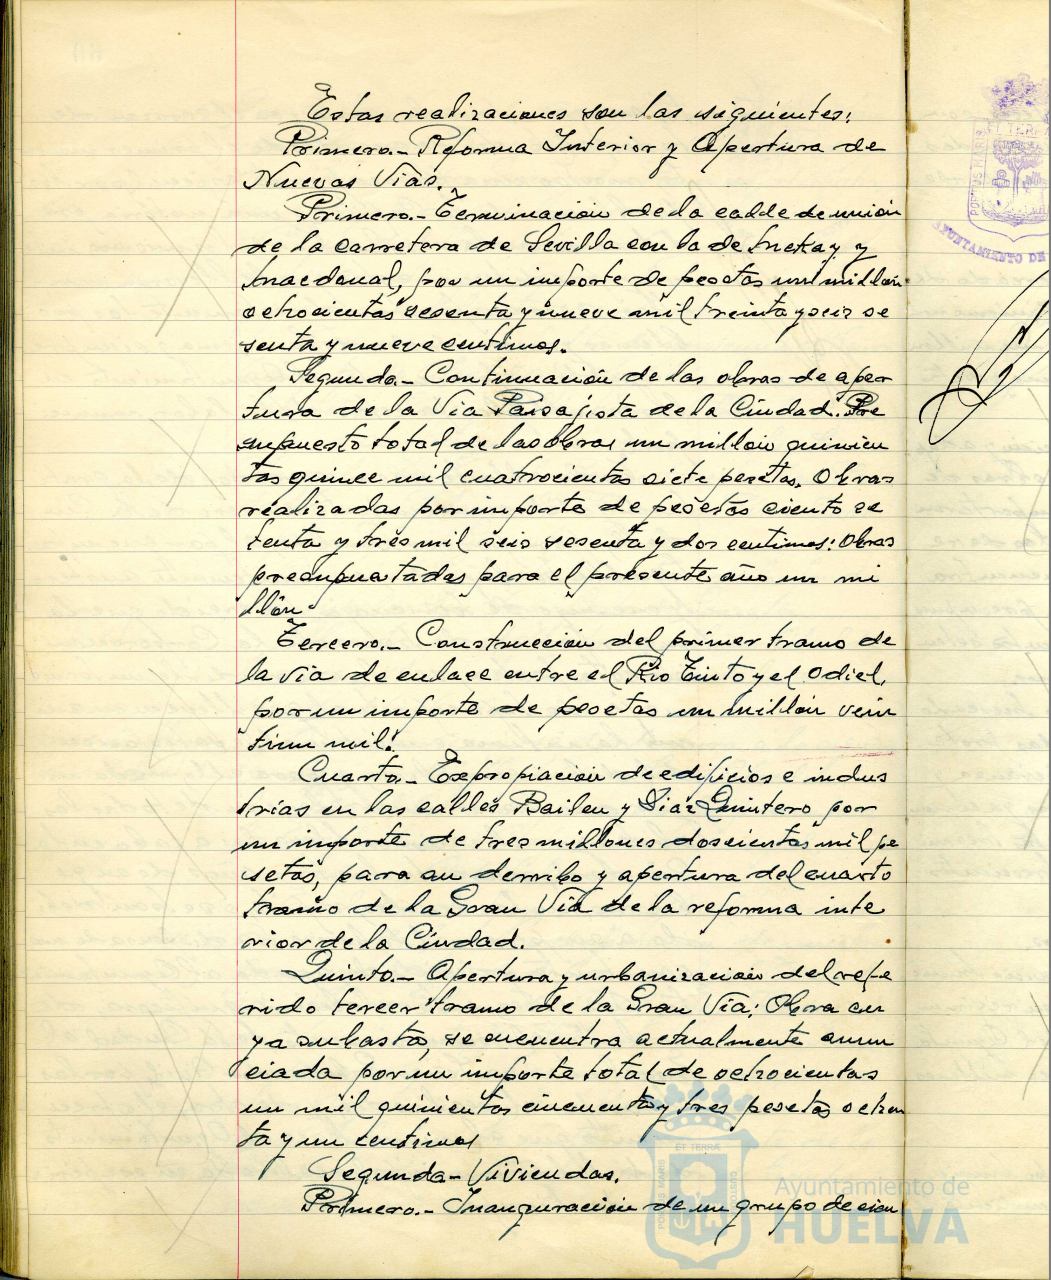 Estas realizaciones son las siguientes:
Primera.- Reforma Interior y Apertura de
Nuevas Vías.
Primero.- Terminación de la calle de unión
de la carretera de Sevilla con la de y
por un importe de pesetas un millón
ochocientas sesenta y nueve mil treinta y seis se
senta y nueve centimos.
Segundo.- Continuación de las obras de aper
tura de la Via Paisajista de la Ciudad. Pre
supuesto total de las obras un millón quinien
tas quince mil cuatrocientas siete pesetas. Obras
realizadas por importe de pesetas ciento se
tenta y tres mil seis sesenta y dos centimos: Obras
presupuestadas para el presente año un mi
llón.
Tercero.- Construcción del primer tramo de
la vía de enlace entre el Rio Tinto y el Odiel,
por un importe de pesetas un millón vein
tiun mil.
Cuarto.- Expropiación de edificios e indus
trias en las calles Bailen y Diaz Quintero por
un importe de tres millones doscientas mil pe
setas, para su derribo y apertura del cuarto
tramo de la Gran Vía de la reforma inte
rior de la Ciudad.
Quinto.- Apertura y urbanización del refe
rido tercer tramo de la Gran Vía; Obra cu
ya subasta, se encuentra actualmente anun
ciada por un importe total de ochocientas
un mil quinientas cincuenta y tres pesetas ochen
ta y un centimos
Segunda.- Viviendas.
Primero.- Inauguración de un grupo de cien
PORTUS MARIS
ET TERRAE
AYUNTAMIENTO DE
Ayuntamiento de
HUELVA